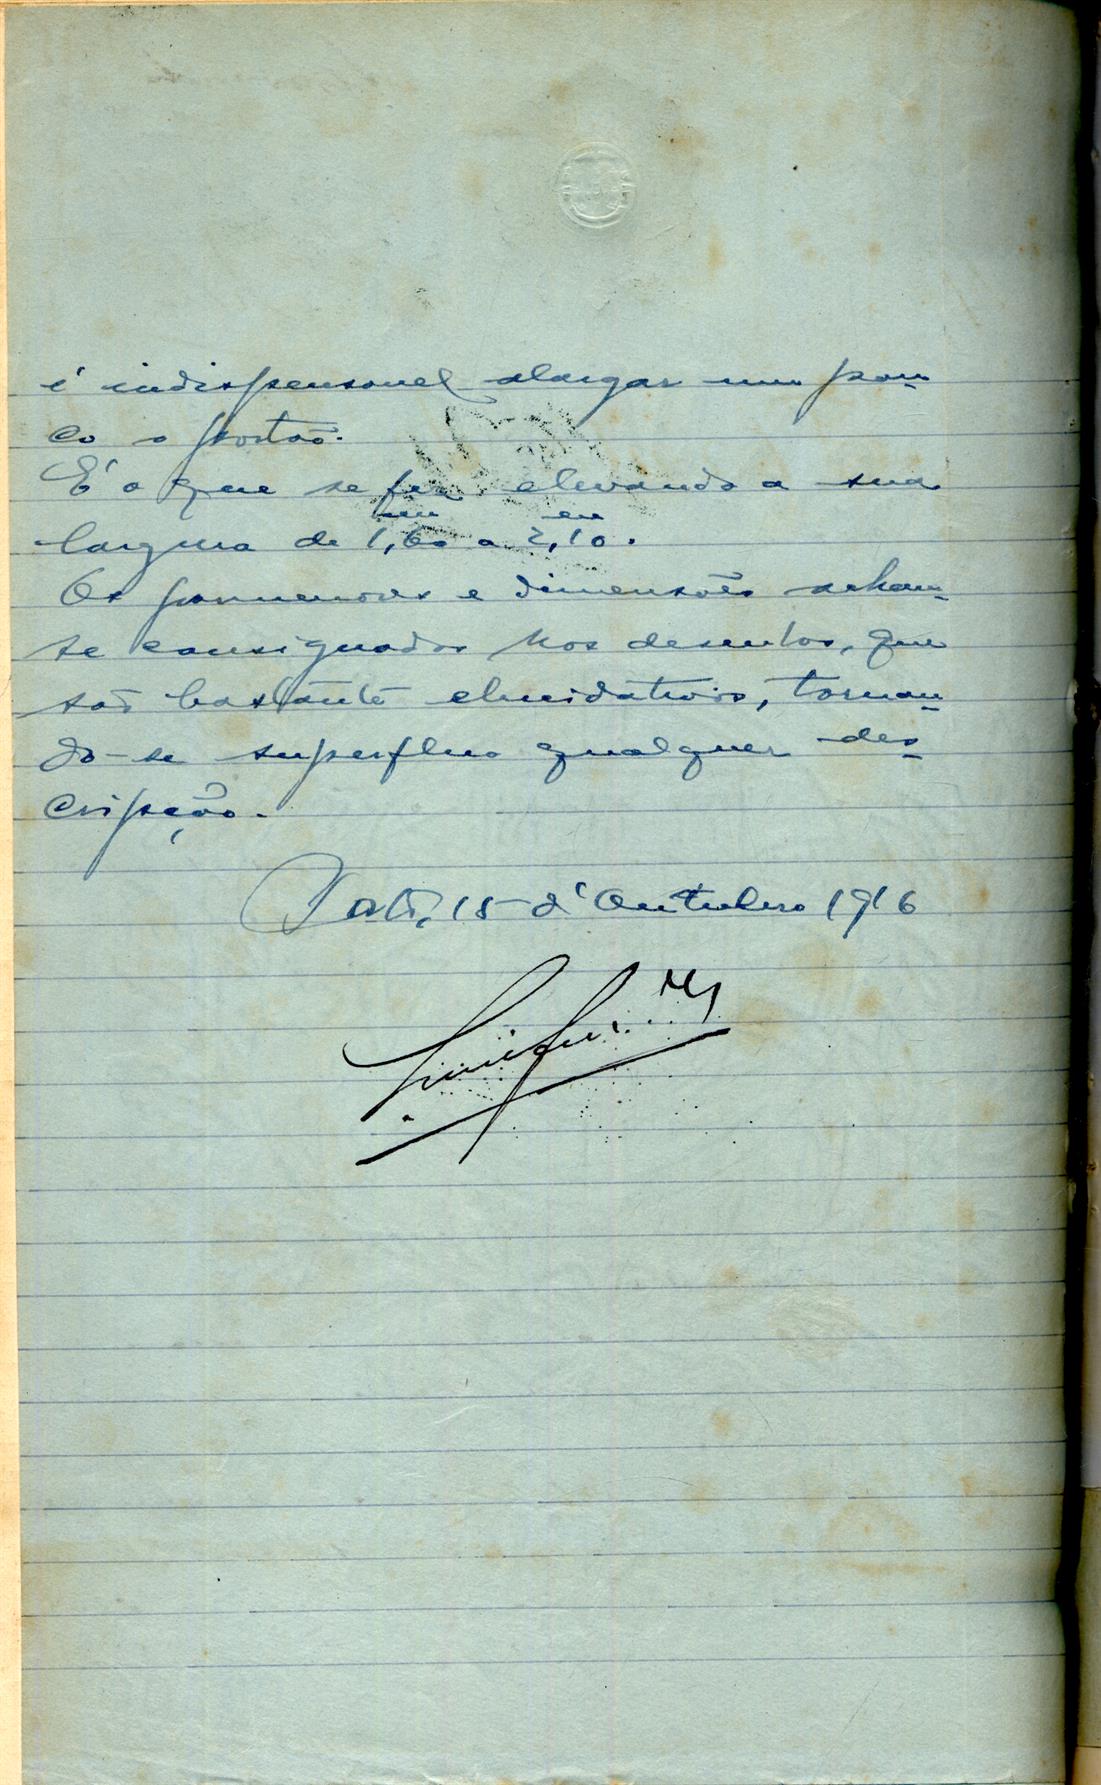 é indispensavel alargar um pou-
co o portão.
É o que se fez elevando a sua
largura de 1,60 a 2,10.
Os pormenores e dimensões acham-
se consignados nos desenhos, que
são bastante elucidativos, tornan-
do-se superfluo qualquer des-
cripção.
Porto, 15 d'Outubro 1916